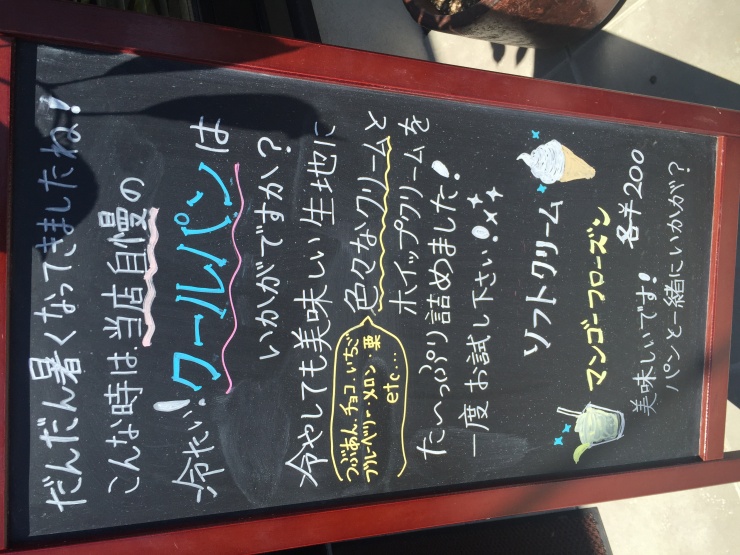 だんだん暑くなってきましたね!
こんな時は、当店自慢の
冷たい!クールパンは
いかがですか?
冷やしても美味しい生地に
色々なクリームと
つぶあん、チョコ、いちご
ブルーベリー、メロン、栗
etc...
ホイップクリームを
たっぷり詰めました!
一度お試し下さい!
ソフトクリーム
マンゴーフローズン
各¥200
美味しいです!
パンと一緒にいかが?